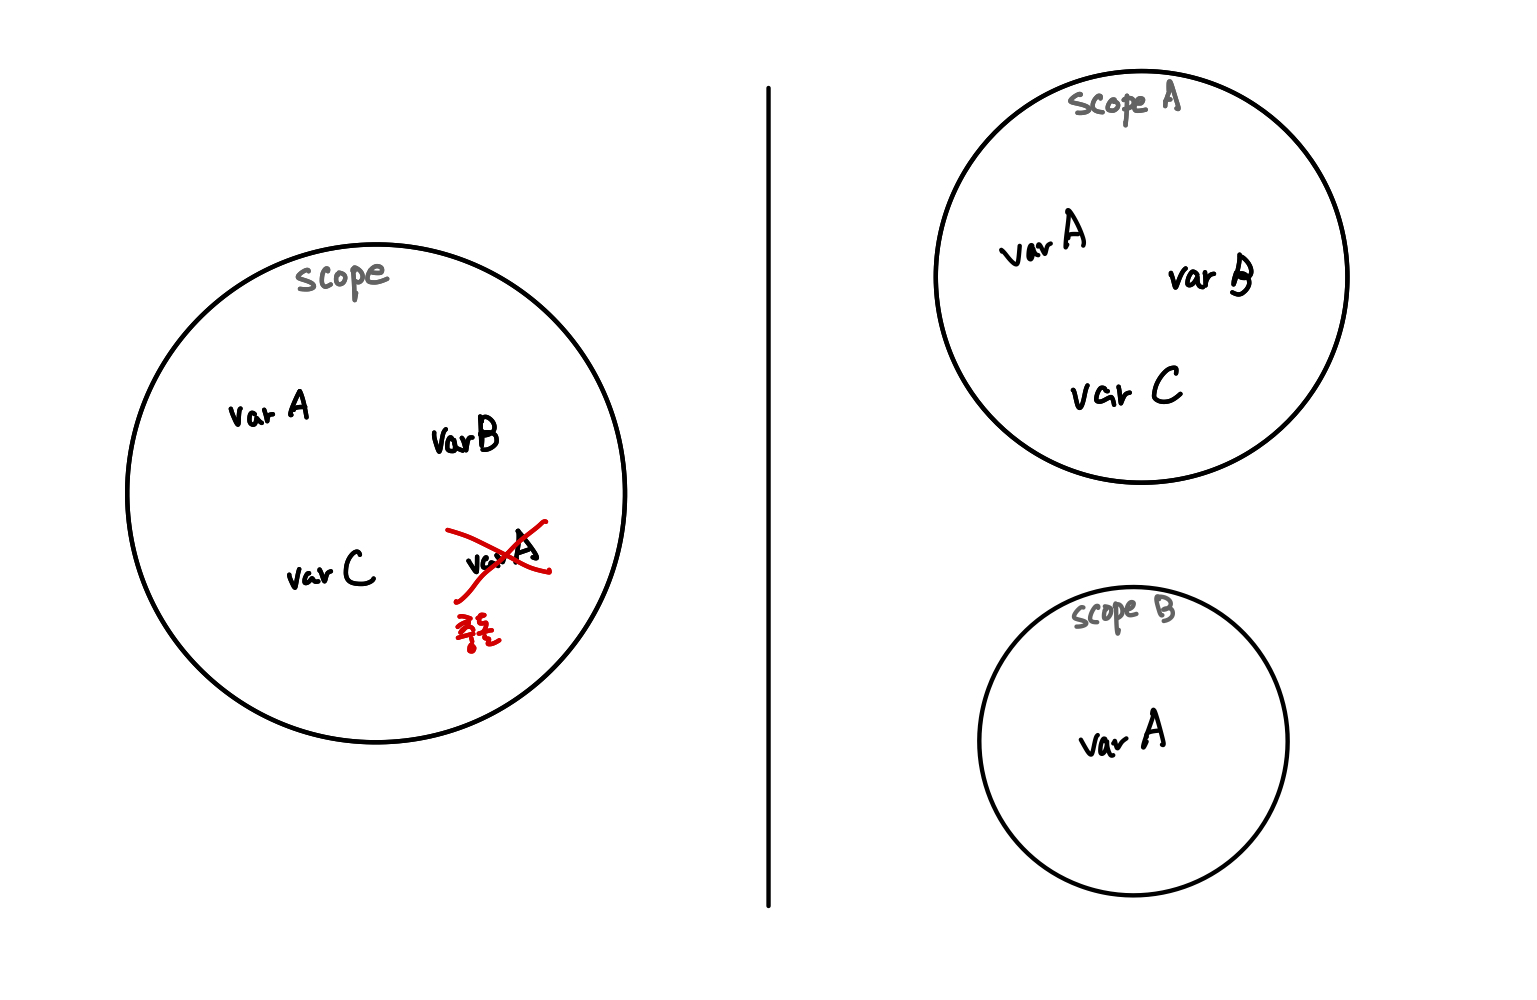 scope
var A
var B
var C
var A
충돌
scope A
var A
var B
var C
scope B
var A